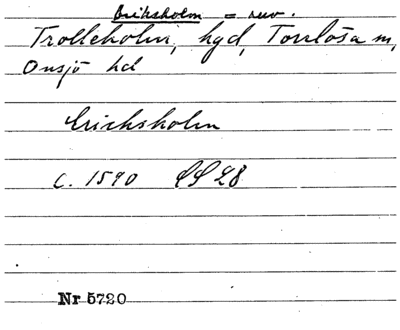 Eriksholm = nuv.
Trolleholm, hgd, Torrlösa sn,
Onsjö hd
Erichsholm
c. 1590 SS 28
Nr 5720